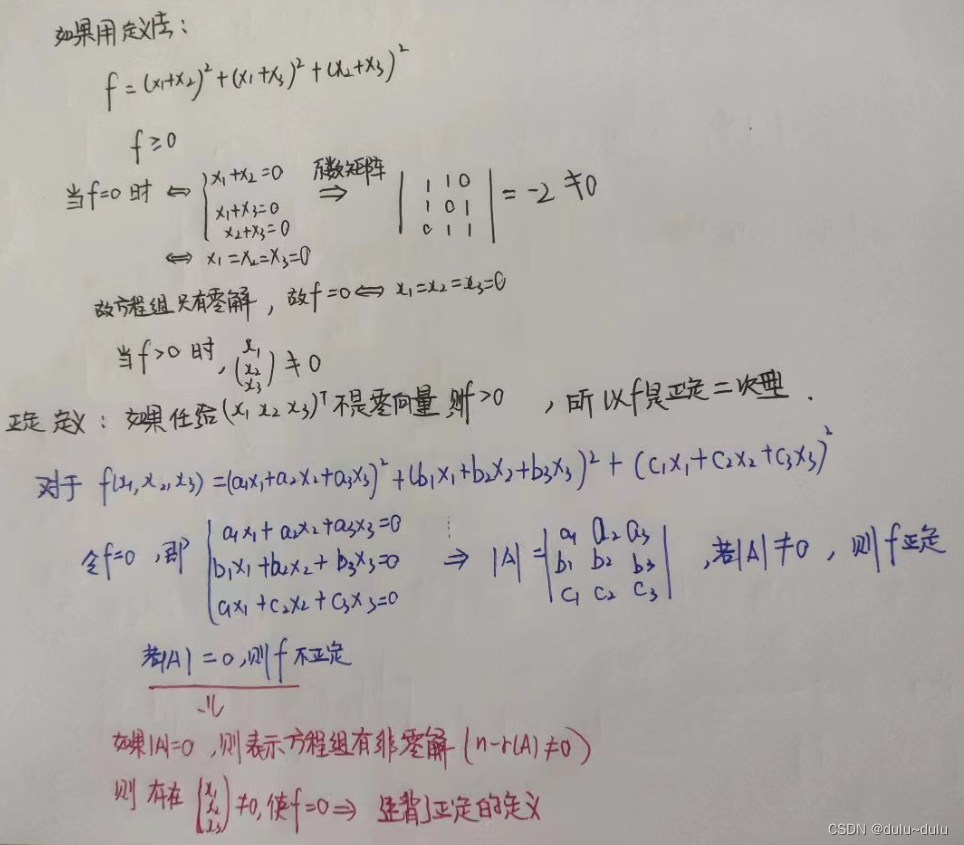 如果用定义法：
f=(x₁+x₂)²+(x₁+x₃)²+(x₂+x₃)²
f≥0
当f=0时 ⇔ { x₁+x₂=0 系数矩阵 ⇒ | 1 1 0 | = -2 ≠0
x₁+x₃=0 | 1 0 1 |
x₂+x₃=0 | 0 1 1 |
⇔ x₁=x₂=x₃=0
故方程组只有零解，故f=0⇔ x₁=x₂=x₃=0
当f>0时，(x₁ x₂ x₃) ≠0
正定定义：如果任给(x₁ x₂ x₃)ᵀ不是零向量 则f>0 ，所以f是正定二次型．
对于 f(x₁,x₂,x₃)=(a₁x₁+a₂x₂+a₃x₃)²+(b₁x₁+b₂x₂+b₃x₃)²+(c₁x₁+c₂x₂+c₃x₃)²
令f=0，即 { a₁x₁+a₂x₂+a₃x₃=0 ⇒ |A|= | a₁ a₂ a₃ | ，若|A|≠0，则f正定
b₁x₁+b₂x₂+b₃x₃=0 | b₁ b₂ b₃ |
c₁x₁+c₂x₂+c₃x₃=0 | c₁ c₂ c₃ |
若|A|=0，则f不正定
⇓
如果|A|=0，则表示方程组有非零解(n-r(A)≠0)
则存在(x₁ x₂ x₃)≠0，使f=0⇒ 违背了正定的定义
CSDN @dulu~dulu